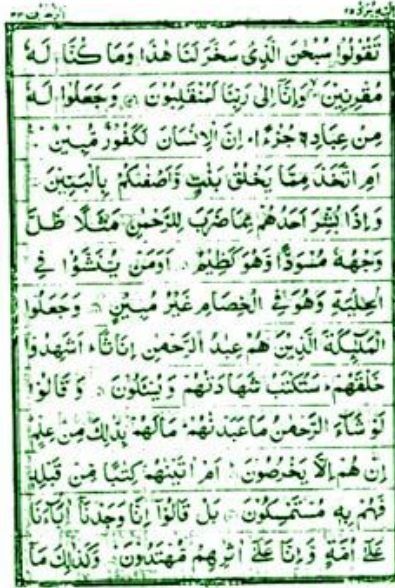 تَقُولُوا سُبْحٰنَ الَّذِىْ سَخَّرَ لَنَا هٰذَا وَمَا كُنَّا لَهٗ
مُقْرِنِيْنَ وَاِنَّآ اِلٰى رَبِّنَا لَمُنْقَلِبُوْنَ وَجَعَلُوْا لَهٗ
مِنْ عِبَادِهٖ جُزْءًا اِنَّ الْاِنْسَانَ لَكَفُوْرٌ مُّبِيْنٌ
اَمِ اتَّخَذَ مِمَّا يَخْلُقُ بَنٰتٍ وَّاَصْفٰىكُمْ بِالْبَنِيْنَ
وَاِذَا بُشِّرَ اَحَدُهُمْ بِمَا ضَرَبَ لِلرَّحْمٰنِ مَثَلًا ظَلَّ
وَجْهُهٗ مُسْوَدًّا وَّهُوَ كَظِيْمٌ اَوَمَنْ يُّنَشَّؤُا فِى
الْحِلْيَةِ وَهُوَ فِى الْخِصَامِ غَيْرُ مُبِيْنٍ وَجَعَلُوا
الْمَلٰٓئِكَةَ الَّذِيْنَ هُمْ عِبٰدُ الرَّحْمٰنِ اِنَاثًا اَشَهِدُوْا
خَلْقَهُمْ سَتُكْتَبُ شَهَادَتُهُمْ وَيُسْـَٔلُوْنَ وَقَالُوْا
لَوْ شَآءَ الرَّحْمٰنُ مَا عَبَدْنٰهُمْ مَا لَهُمْ بِذٰلِكَ مِنْ عِلْمٍ
اِنْ هُمْ اِلَّا يَخْرُصُوْنَ اَمْ اٰتَيْنٰهُمْ كِتٰبًا مِّنْ قَبْلِهٖ
فَهُمْ بِهٖ مُسْتَمْسِكُوْنَ بَلْ قَالُوْٓا اِنَّا وَجَدْنَآ اٰبَآءَنَا
عَلٰٓى اُمَّةٍ وَّاِنَّا عَلٰٓى اٰثٰرِهِمْ مُّهْتَدُوْنَ وَكَذٰلِكَ مَآ